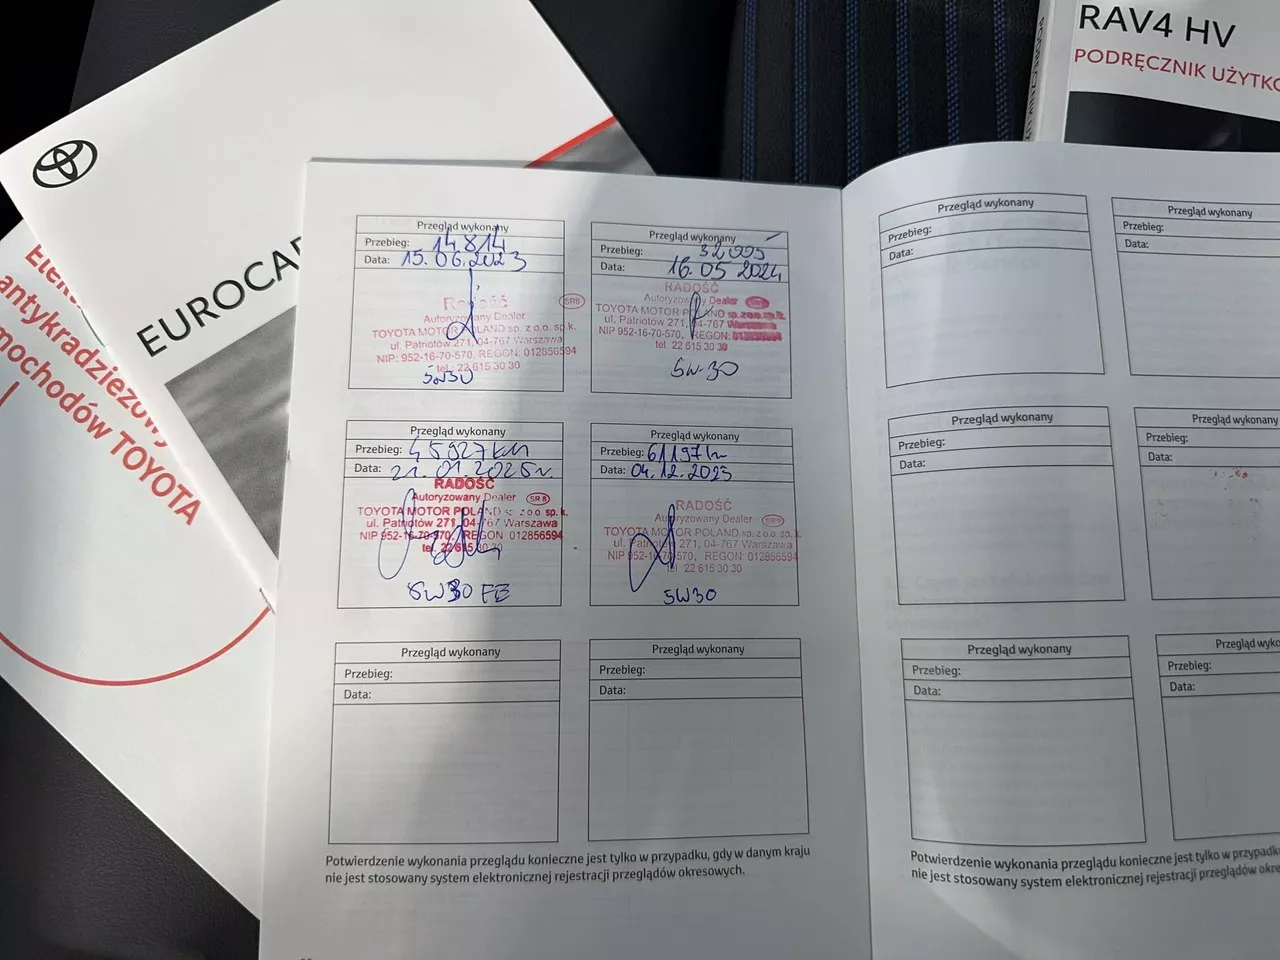 RAV4 HV
PODRĘCZNIK UŻYTKO
EUROCA
antykradzieżowy
mochodów TOYOTA
Przegląd wykonany
Przebieg: 14814
Data: 15.06.2023
Radość
SR5
Autoryzowany Dealer
TOYOTA MOTOR POLAND sp. z o.o. sp.k.
ul. Patriotów 271, 04-767 Warszawa
NIP: 952-16-70-570, REGON: 012856594
tel.: 22 615 30 30
5W30
Przegląd wykonany
Przebieg: 32995
Data: 16.05 2024
RADOŚĆ
Autoryzowany Dealer
TOYOTA MOTOR POLAND sp. z o.o. sp.k.
ul. Patriotów 271, 04-767 Warszawa
NIP 952-16-70-570, REGON:
tel. 22 615 30 30
5W-30
Przegląd wykonany
Przebieg: 45927km
Data: 21.01.2025r.
RADOŚĆ
Autoryzowany Dealer SR8
TOYOTA MOTOR POLAND sp. z o.o. sp.k.
ul. Patriotów 271, 04-767 Warszawa
NIP 952-16-70-570, REGON 012856594
tel. 22 615 30 30
5W30 FE
Przegląd wykonany
Przebieg: 61197km
Data: 04.12.2025
RADOŚĆ
Autoryzowany Dealer SR9
TOYOTA MOTOR POLAND sp. z o.o. sp.k.
ul. Patriotów 271, 04-767 Warszawa
NIP 952-16-70-570, REGON 012856594
tel. 22 615 30 30
5W30
Przegląd wykonany
Przebieg:
Data:
Przegląd wykonany
Przebieg:
Data:
Potwierdzenie wykonania przeglądu konieczne jest tylko w przypadku, gdy w danym kraju
nie jest stosowany system elektronicznej rejestracji przeglądów okresowych.
Przegląd wykonany
Przebieg:
Data:
Przegląd wykonany
Przebieg:
Data:
Przegląd wykonany
Przebieg:
Data:
Przegląd wykonany
Przebieg:
Data:
Przegląd wykonany
Przebieg:
Data:
Przegląd wyko
Przebieg:
Data:
Potwierdzenie wykonania przeglądu konieczne jest tylko w przypadku
nie jest stosowany system elektronicznej rejestracji przeglądów okre